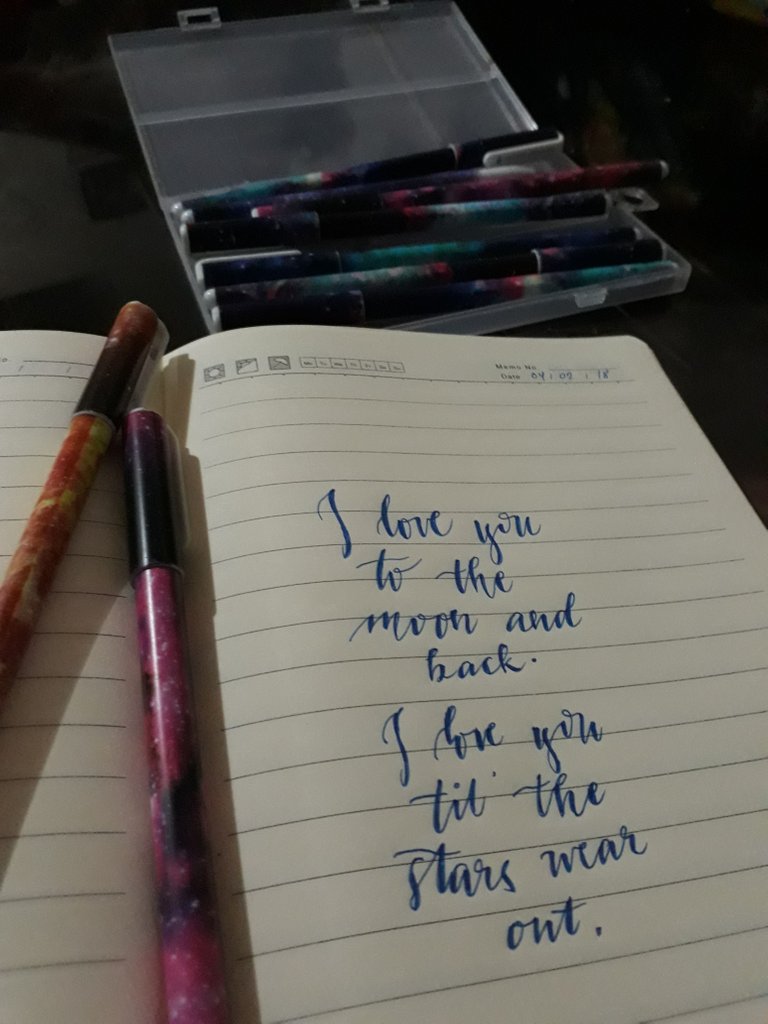 Memo No.
Date 04 / 02 / 18
I love you
to the
moon and
back.
I love you
til' the
stars wear
out.